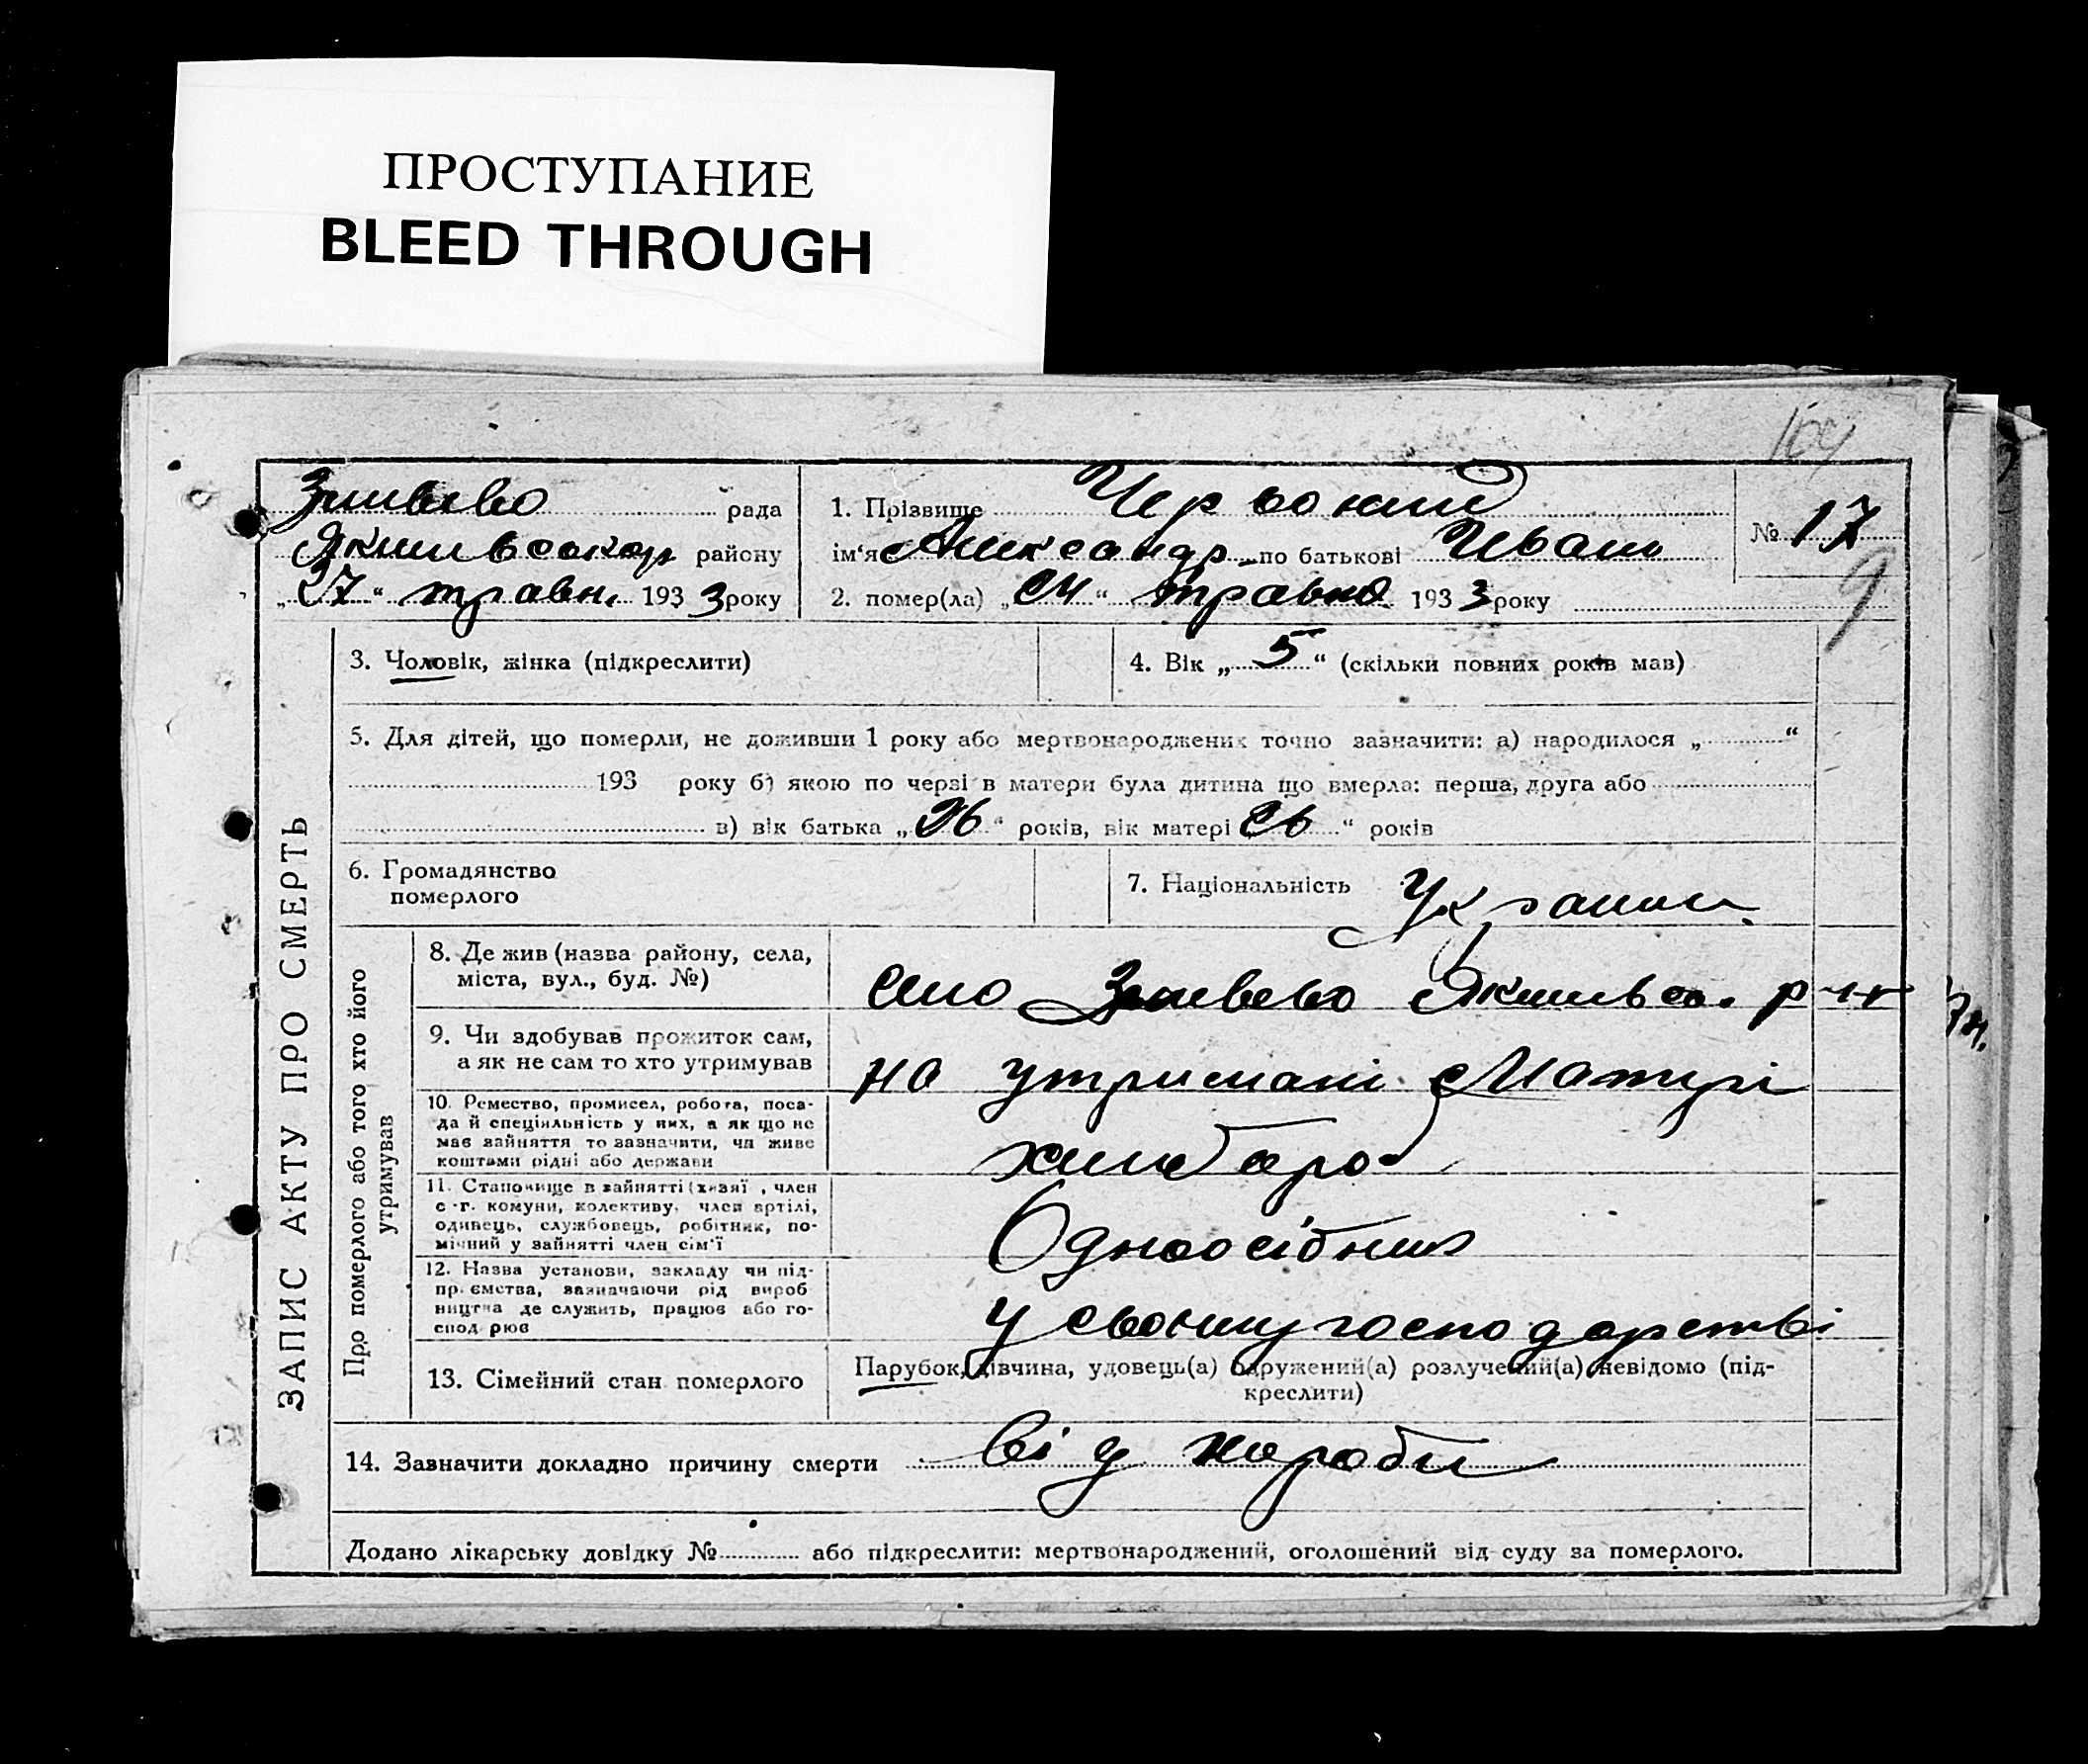 ПРОСТУПАНИЕ
BLEED THROUGH
рада
району
"27" травн. 1933 року
1. Прізвище Червоний
ім'я Александр по батькові Иван
2. помер(ла) „24“ травня 1933 року
№ 17
9
3. Чоловік, жінка (підкреслити)
4. Вік „5“ (скільки повних років мав)
5. Для дітей, що померли, не доживши 1 року або мертвонароджених точно зазначити: а) народилося „ “
193 року б) якою по черзі в матери була дитина що вмерла: перша, друга або
в) вік батька „ “ років, вік матері „ “ років
6. Громадянство
померлого
7. Національність
ЗАПИС АКТУ ПРО СМЕРТЬ
Про померлого або того хто його
утримував
8. Де жив (назва району, села,
міста, вул., буд. №)
село
9. Чи здобував прожиток сам,
а як не сам то хто утримував
на утримані Матері
10. Ремество, промисел, робота, поса-
да й спеціяльність у них, а як що не
має зайняття то зазначити, чи живе
коштами рідні або держави
хлебороб
11. Становище в зайнятті (хазяї , член
с-г. комуни, колективу, член артілі,
одинець, службовець, робітник, по-
мічний у зайнятті член сім'ї
Одноосібник
12. Назва установи, закладу чи під-
пр.ємства, вазначаючи рід вироб
ництва де служить, працює або го-
спод рює
у своему господарстві
13. Сімейний стан померлого
Парубок, дівчина, удовець(а) одружений(а) розлучений(а) невідомо (під-
креслити)
14. Зазначити докладно причину смерти від хороби
Додано лікарську довідку № або підкреслити: мертвонароджений, оголошений від суду за померлого.